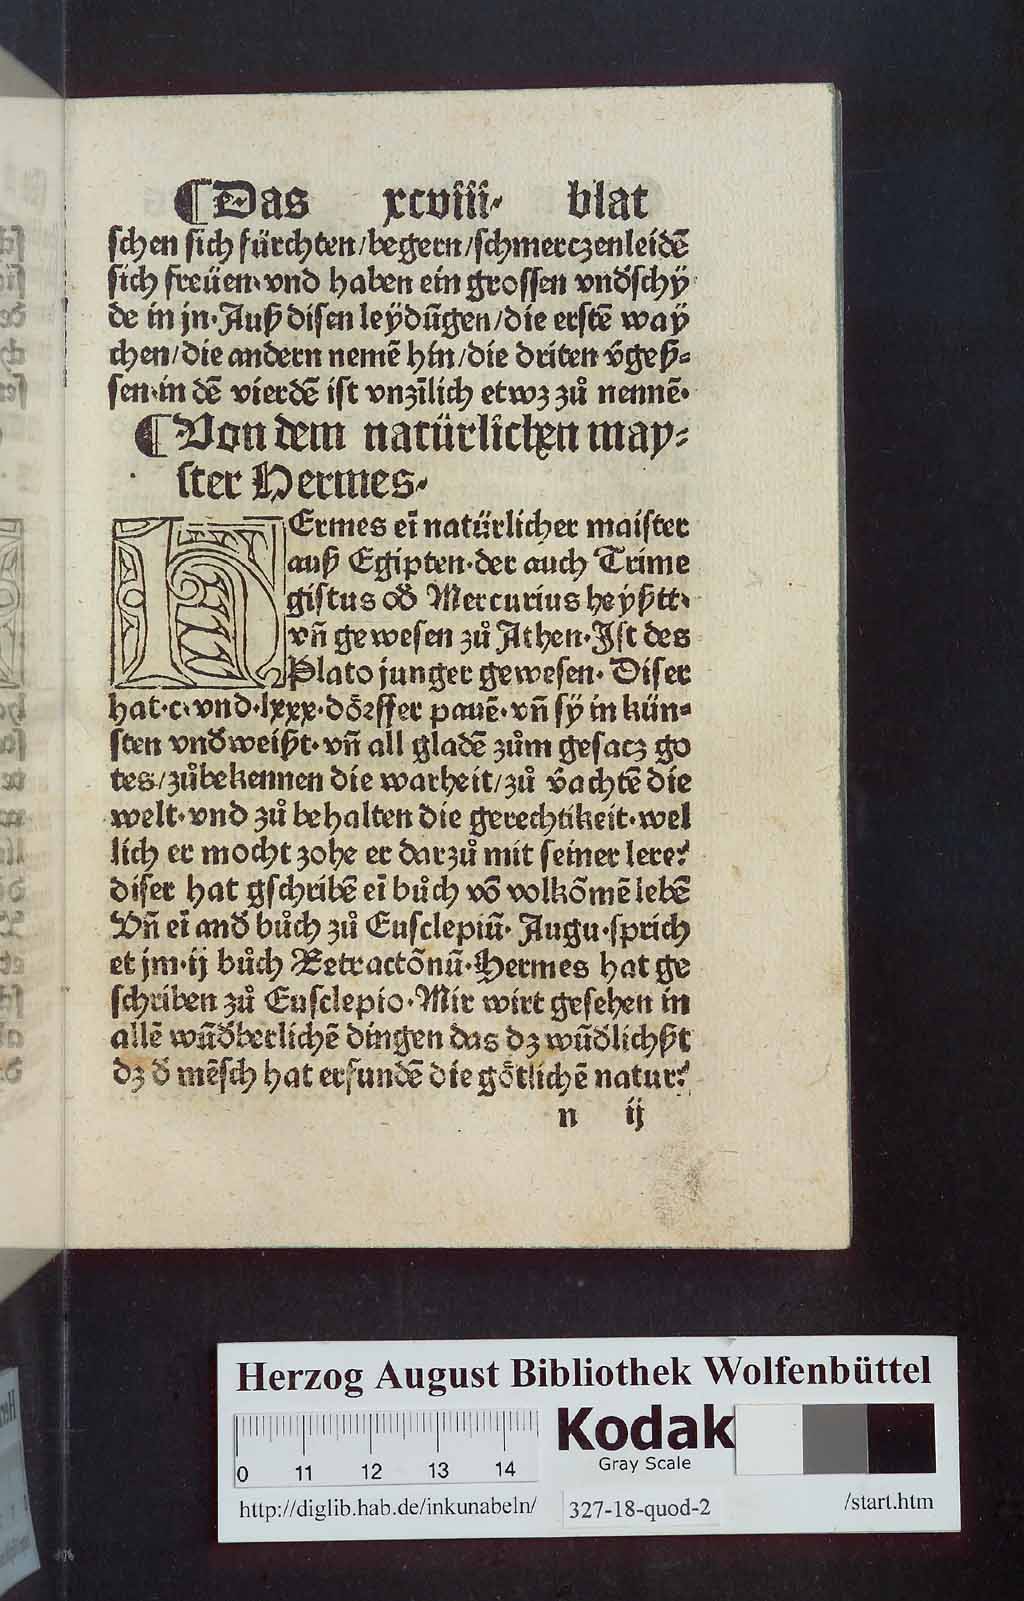 ¶Das xcviii· blat
schen sich fürchten/begern/schmerczenleidē
sich freüen·vnd haben ein grossen vnd̄schÿ
de in jn·Auß disen leÿdūgen/die erstē waÿ
chen/die andern nemē hin/die driten v̄geß⸗
sen·in dē vierdē ist vnzīlich etwꝫ zů nennē·
¶Von dem natürlichen may⸗
ster Hermes·
HErmes eī natürlicher maister
auß Egipten·der auch Trime
gistus od̄ Mercurius heÿßtt·
vn̄ gewesen zů Athen·Ist des
Plato junger gewesen· Diser
hat·c·vnd·lxxx·dörffer pauē·vn̄ sÿ in kün⸗
sten vnd̄weißt·vn̄ all gladē zům gesacz go
tes/zůbekennen die warheit/zů v̄achtē die
welt·vnd zů behalten die gerechtikeit·wel
lich er mocht zohe er darzů mit seiner lere:
diser hat gschribē eī bůch vō volkōmē lebē
Vn̄ eī and̄ bůch zů Eusclepiū· Augu·sprich
et jm·ij bůch Retractōnū·Hermes hat ge
schriben zů Eusclepio·Mir wirt gesehen in
allē wūd̄berlichē dingen das dꝫ wūd̄lichßt
dꝫ d̄ mēsch hat erfundē die götlichē natur:
n ij
Herzog August Bibliothek Wolfenbüttel
0 11 12 13 14
Kodak
Gray Scale
http://diglib.hab.de/inkunabeln/ 327-18-quod-2 /start.htm